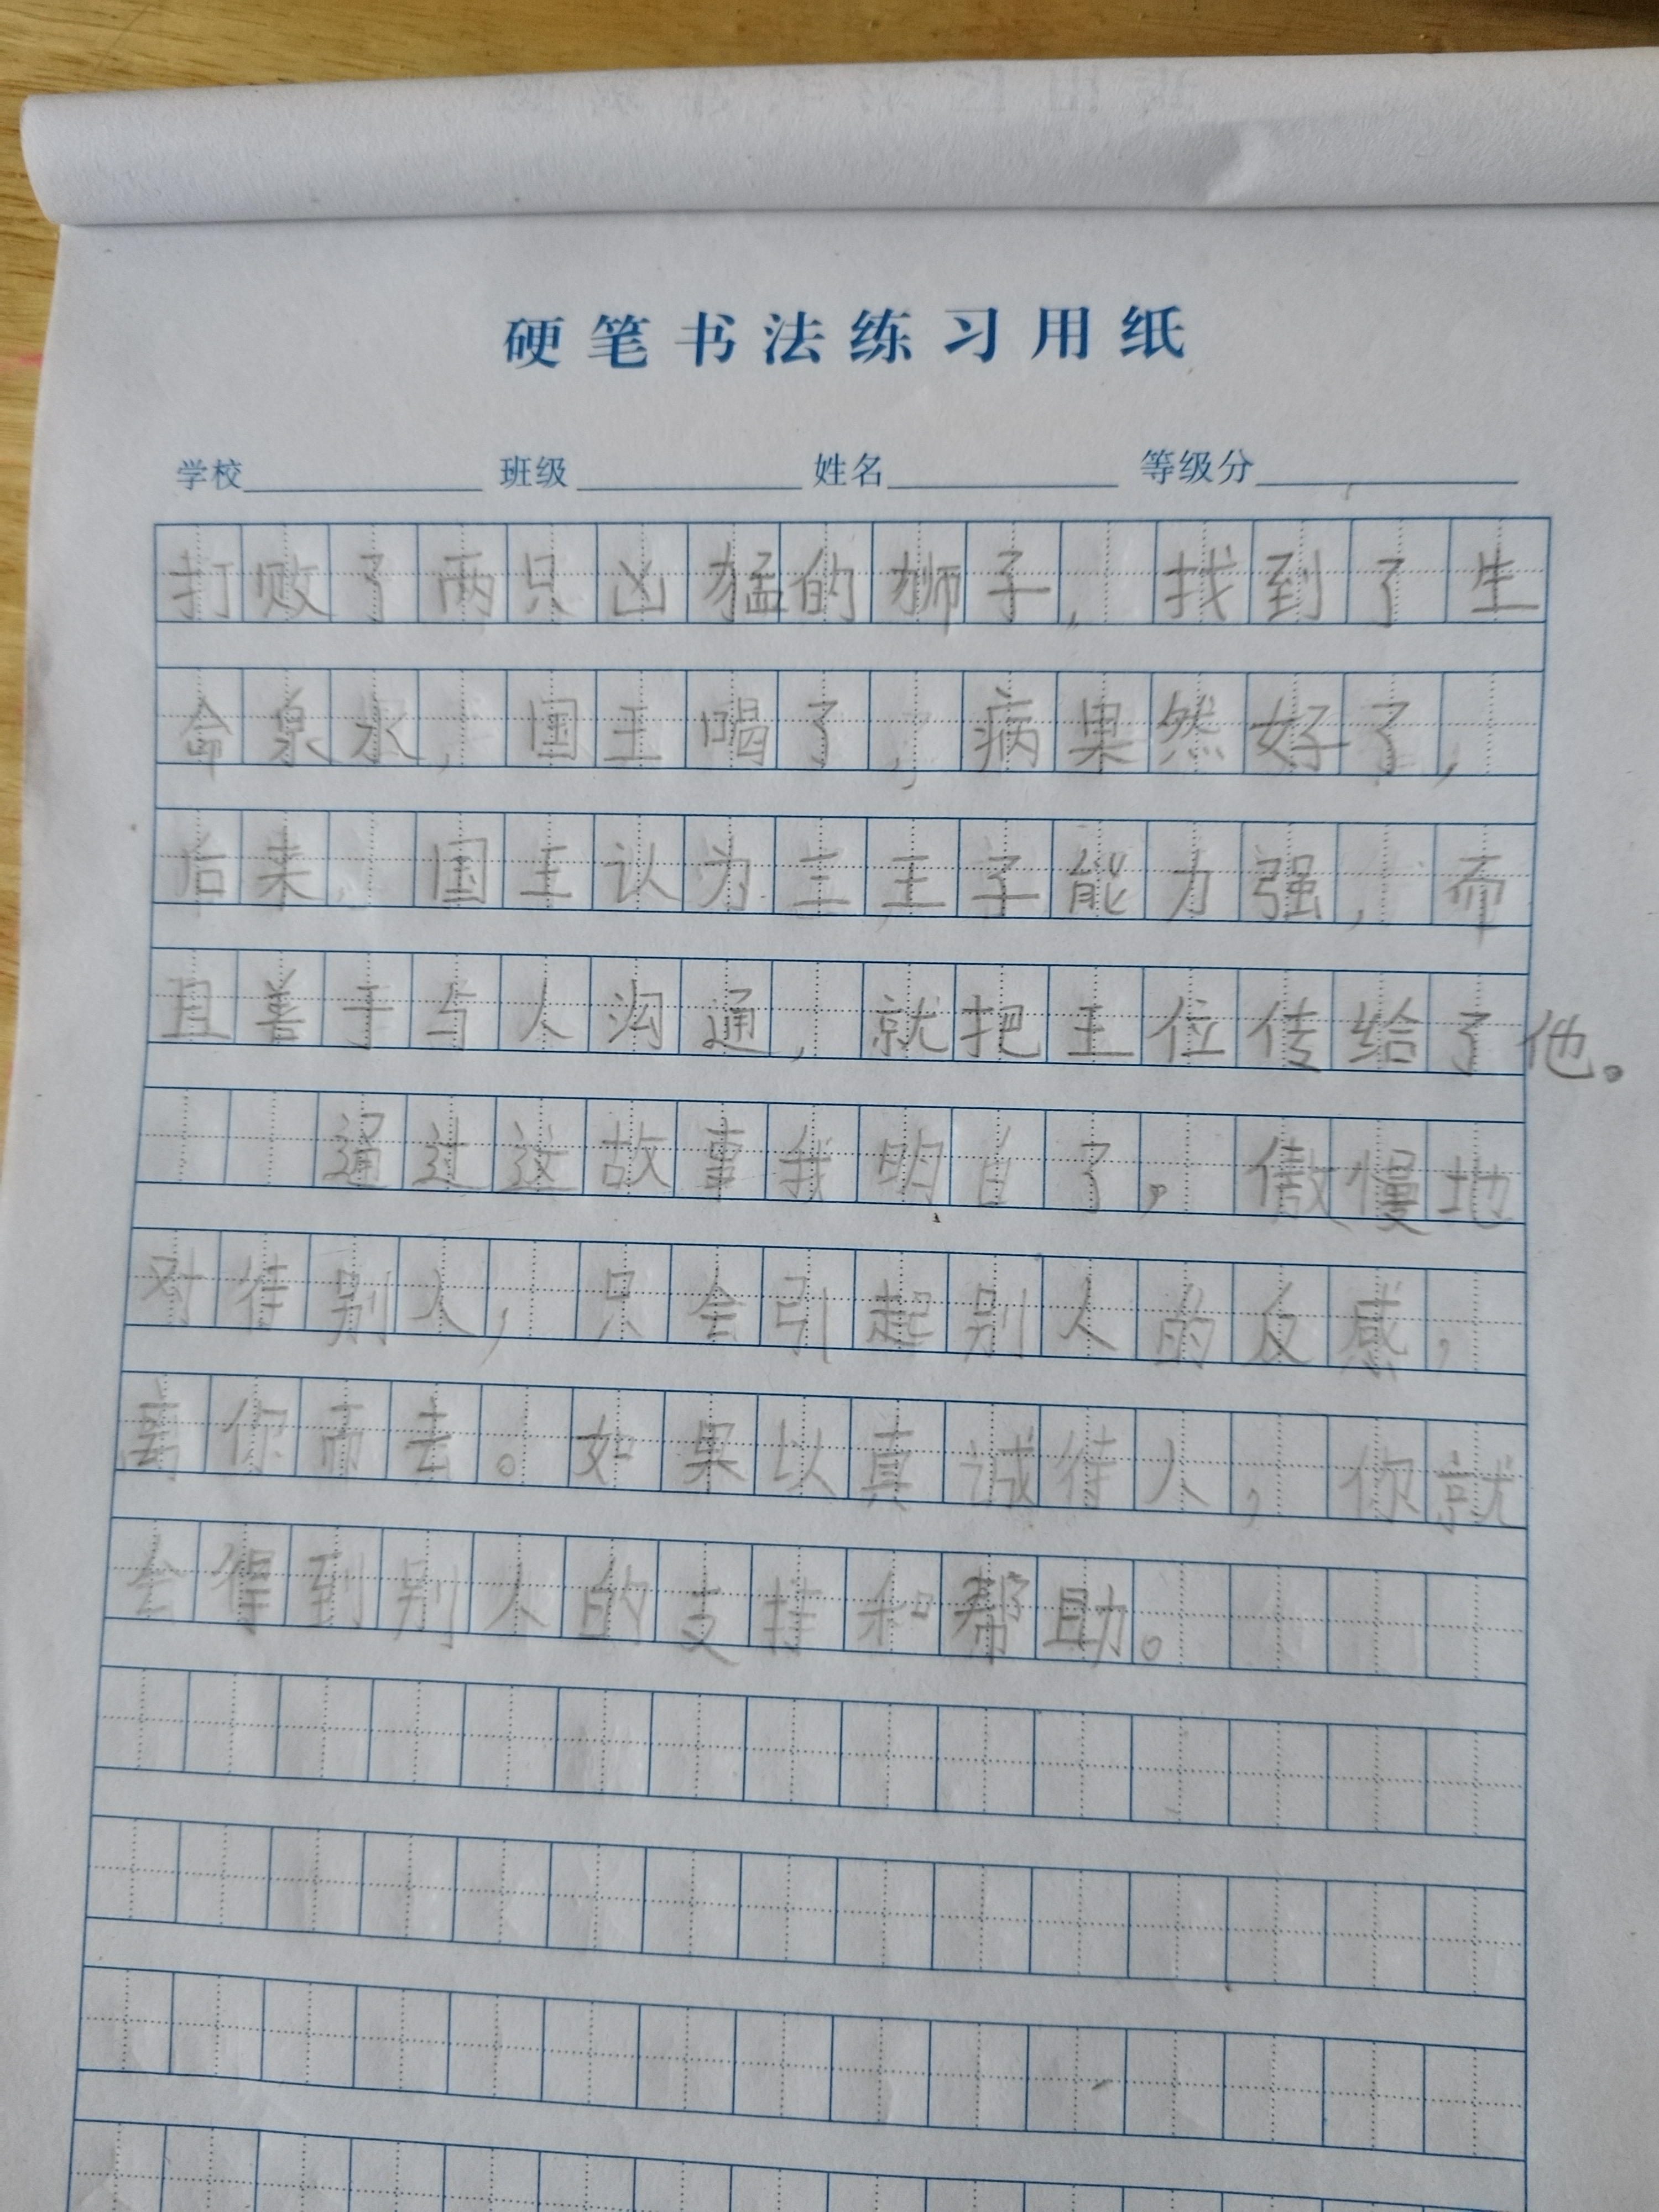 硬笔书法练习用纸
学校 班级 姓名 等级分
打败了两只凶猛的狮子,找到了生
命泉水,国王喝了,病果然好了,
后来,国王认为三王子能力强,而
且善于与人沟通,就把王位传给了他。
通过这故事我明白了。傲慢地
对待别人,只会引起别人的反感,
离你而去。如果以真诚待人,你就
会得到别人的支持和帮助。